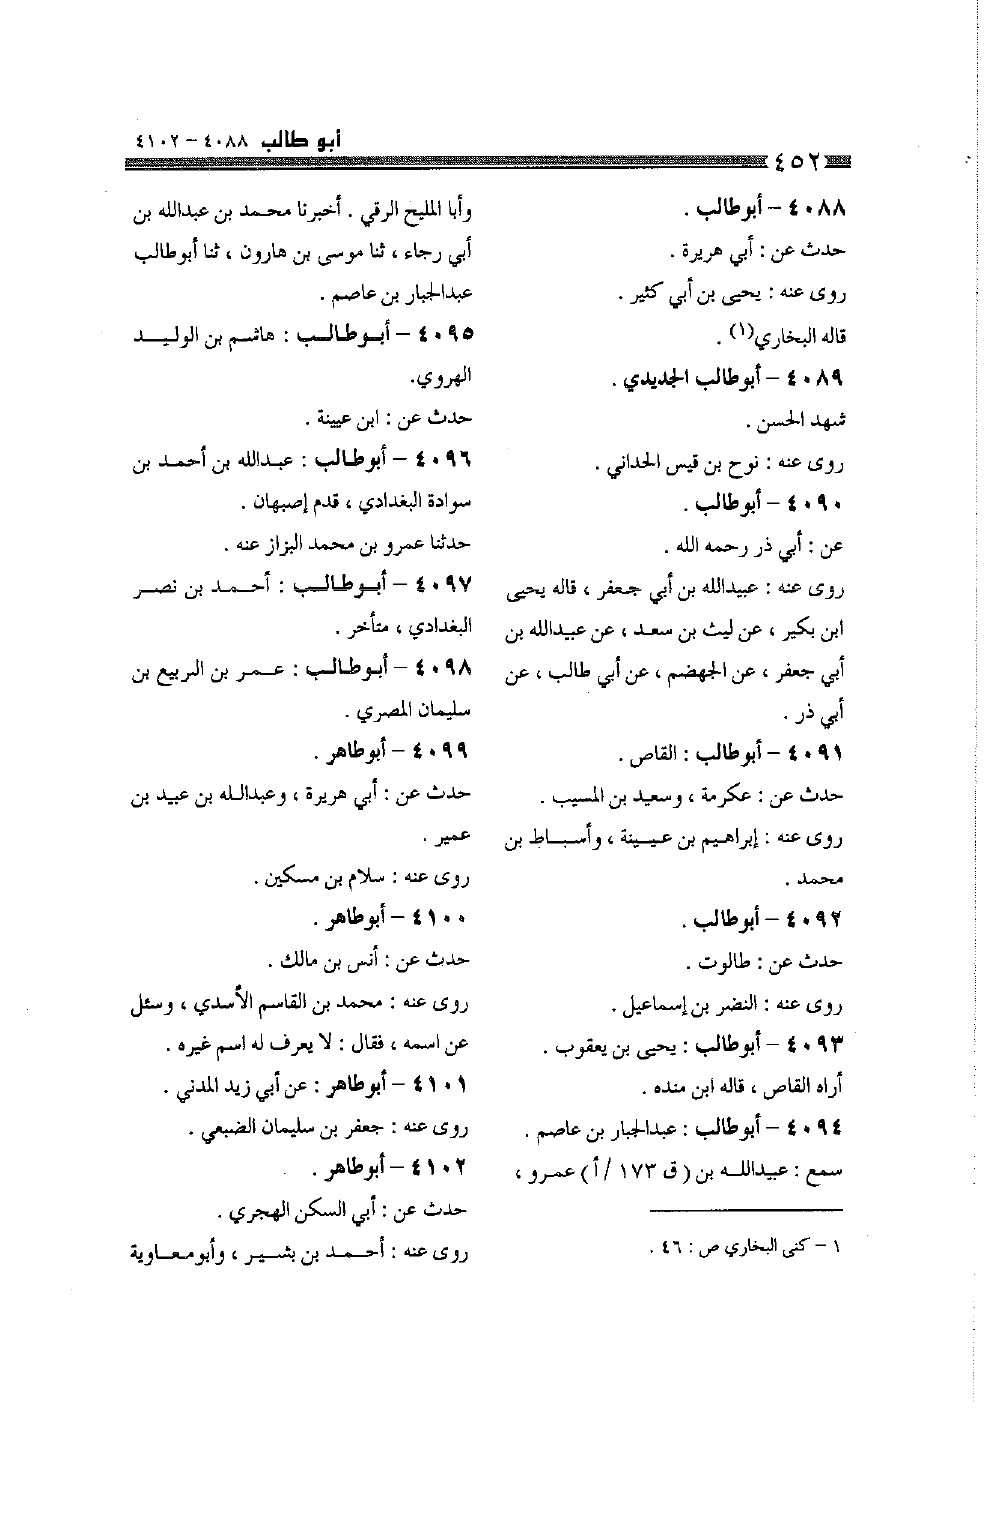 أبو طالب ٤٠٨٨ – ٤١٠٢
٤٥٢
٤٠٨٨ – أبو طالب .
حدث عن : أبي هريرة .
روى عنه : يحيى بن أبي كثير .
قاله البخاري(١) .
٤٠٨٩ – أبو طالب الجديدي .
شهد الحسن .
روى عنه : نوح بن قيس الحداني .
٤٠٩٠ – أبو طالب .
عن : أبي ذر رحمه الله .
روى عنه : عبيدالله بن أبي جعفر ، قاله يحيى
ابن بكير ، عن ليث بن سعد ، عن عبيدالله بن
أبي جعفر ، عن الجهضم ، عن أبي طالب ، عن
أبي ذر .
٤٠٩١ – أبو طالب : القاص .
حدث عن : عكرمة ، وسعيد بن المسيب .
روى عنه : إبراهيم بن عيينة ، وأسباط بن
محمد .
٤٠٩٢ – أبو طالب .
حدث عن : طالوت .
روى عنه : النضر بن إسماعيل .
٤٠٩٣ – أبو طالب : يحيى بن يعقوب .
أراه القاص ، قاله ابن منده .
٤٠٩٤ – أبو طالب : عبدالجبار بن عاصم .
سمع : عبيدالله بن ( ق ١٧٣ / أ ) عمرو ،
١ – كنى البخاري ص : ٤٦ .
وأبا المليح الرقي . أخبرنا محمد بن عبدالله بن
أبي رجاء ، ثنا موسى بن هارون ، ثنا أبو طالب
عبدالجبار بن عاصم .
٤٠٩٥ – أبو طالب : هاشم بن الوليد
الهروي.
حدث عن : ابن عيينة .
٤٠٩٦ – أبو طالب : عبدالله بن أحمد بن
سوادة البغدادي ، قدم إصبهان .
حدثنا عمرو بن محمد البزاز عنه .
٤٠٩٧ – أبو طالب : أحمد بن نصر
البغدادي ، متأخر .
٤٠٩٨ – أبو طالب : عمر بن الربيع بن
سليمان المصري .
٤٠٩٩ – أبو طاهر .
حدث عن : أبي هريرة ، وعبدالله بن عبيد بن
عمير .
روى عنه : سلام بن مسكين .
٤١٠٠ – أبو طاهر .
حدث عن : أنس بن مالك .
روى عنه : محمد بن القاسم الأسدي ، وسئل
عن اسمه ، فقال : لا يعرف له اسم غيره .
٤١٠١ – أبو طاهر : عن أبي زيد المدني .
روى عنه : جعفر بن سليمان الضبعي .
٤١٠٢ – أبو طاهر .
حدث عن : أبي السكن الهجري .
روى عنه : أحمد بن بشير ، وأبو معاوية